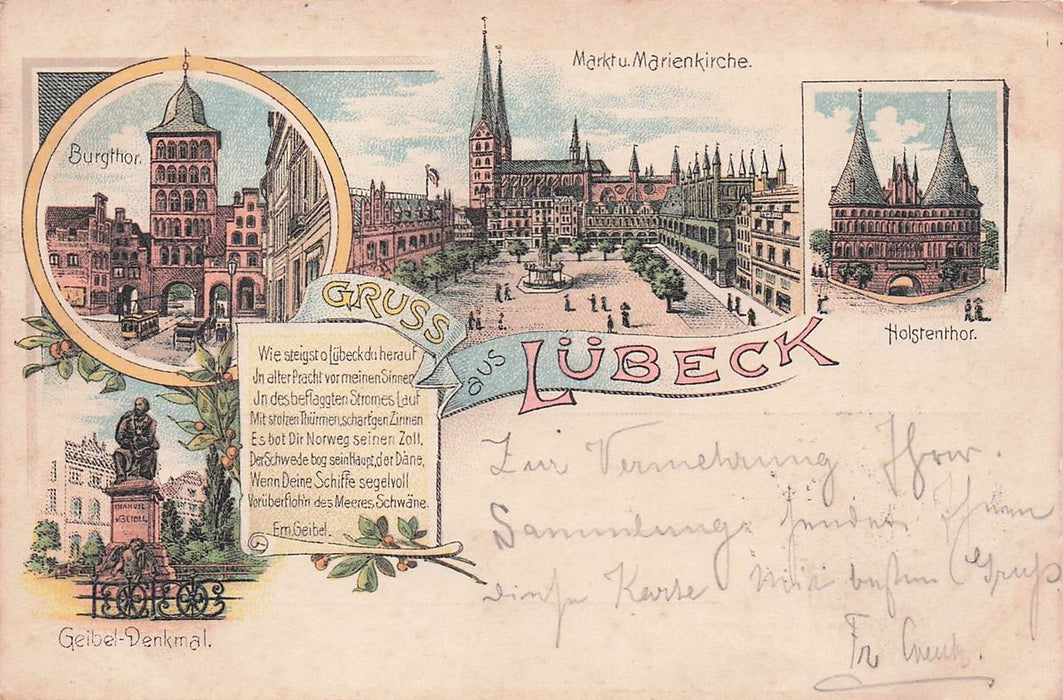 Markt u. Marienkirche.
Burgthor.
Holstenthor.
GRUSS
aus
LÜBECK
Wie steigst o Lübeck du herauf
Jn alter Pracht vor meinen Sinnen
Jn des beflaggten Stromes Lauf
Mit stolzen Thürmen, schart'gen Zinnen
Es bot Dir Norweg seinen Zoll,
Der Schwede bog sein Haupt, der Däne,
Wenn Deine Schiffe segelvoll
Vorüberfloh'n des Meeres Schwäne.
Em. Geibel.
EMANUEL
v. GEIBEL
Geibel-Denkmal.
Zur Vermehrung Ihrer
Sammlung sendet Ihnen
diese Karte Mit besten Gruß
Fr